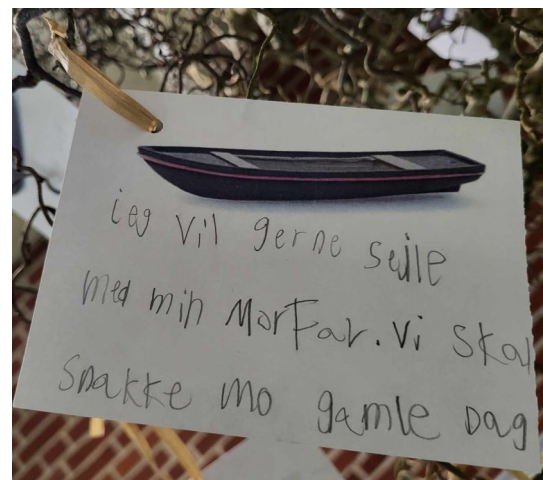 ieg vil gerne sejle
med min MorFar. vi skal
snakke mo gamle Dag